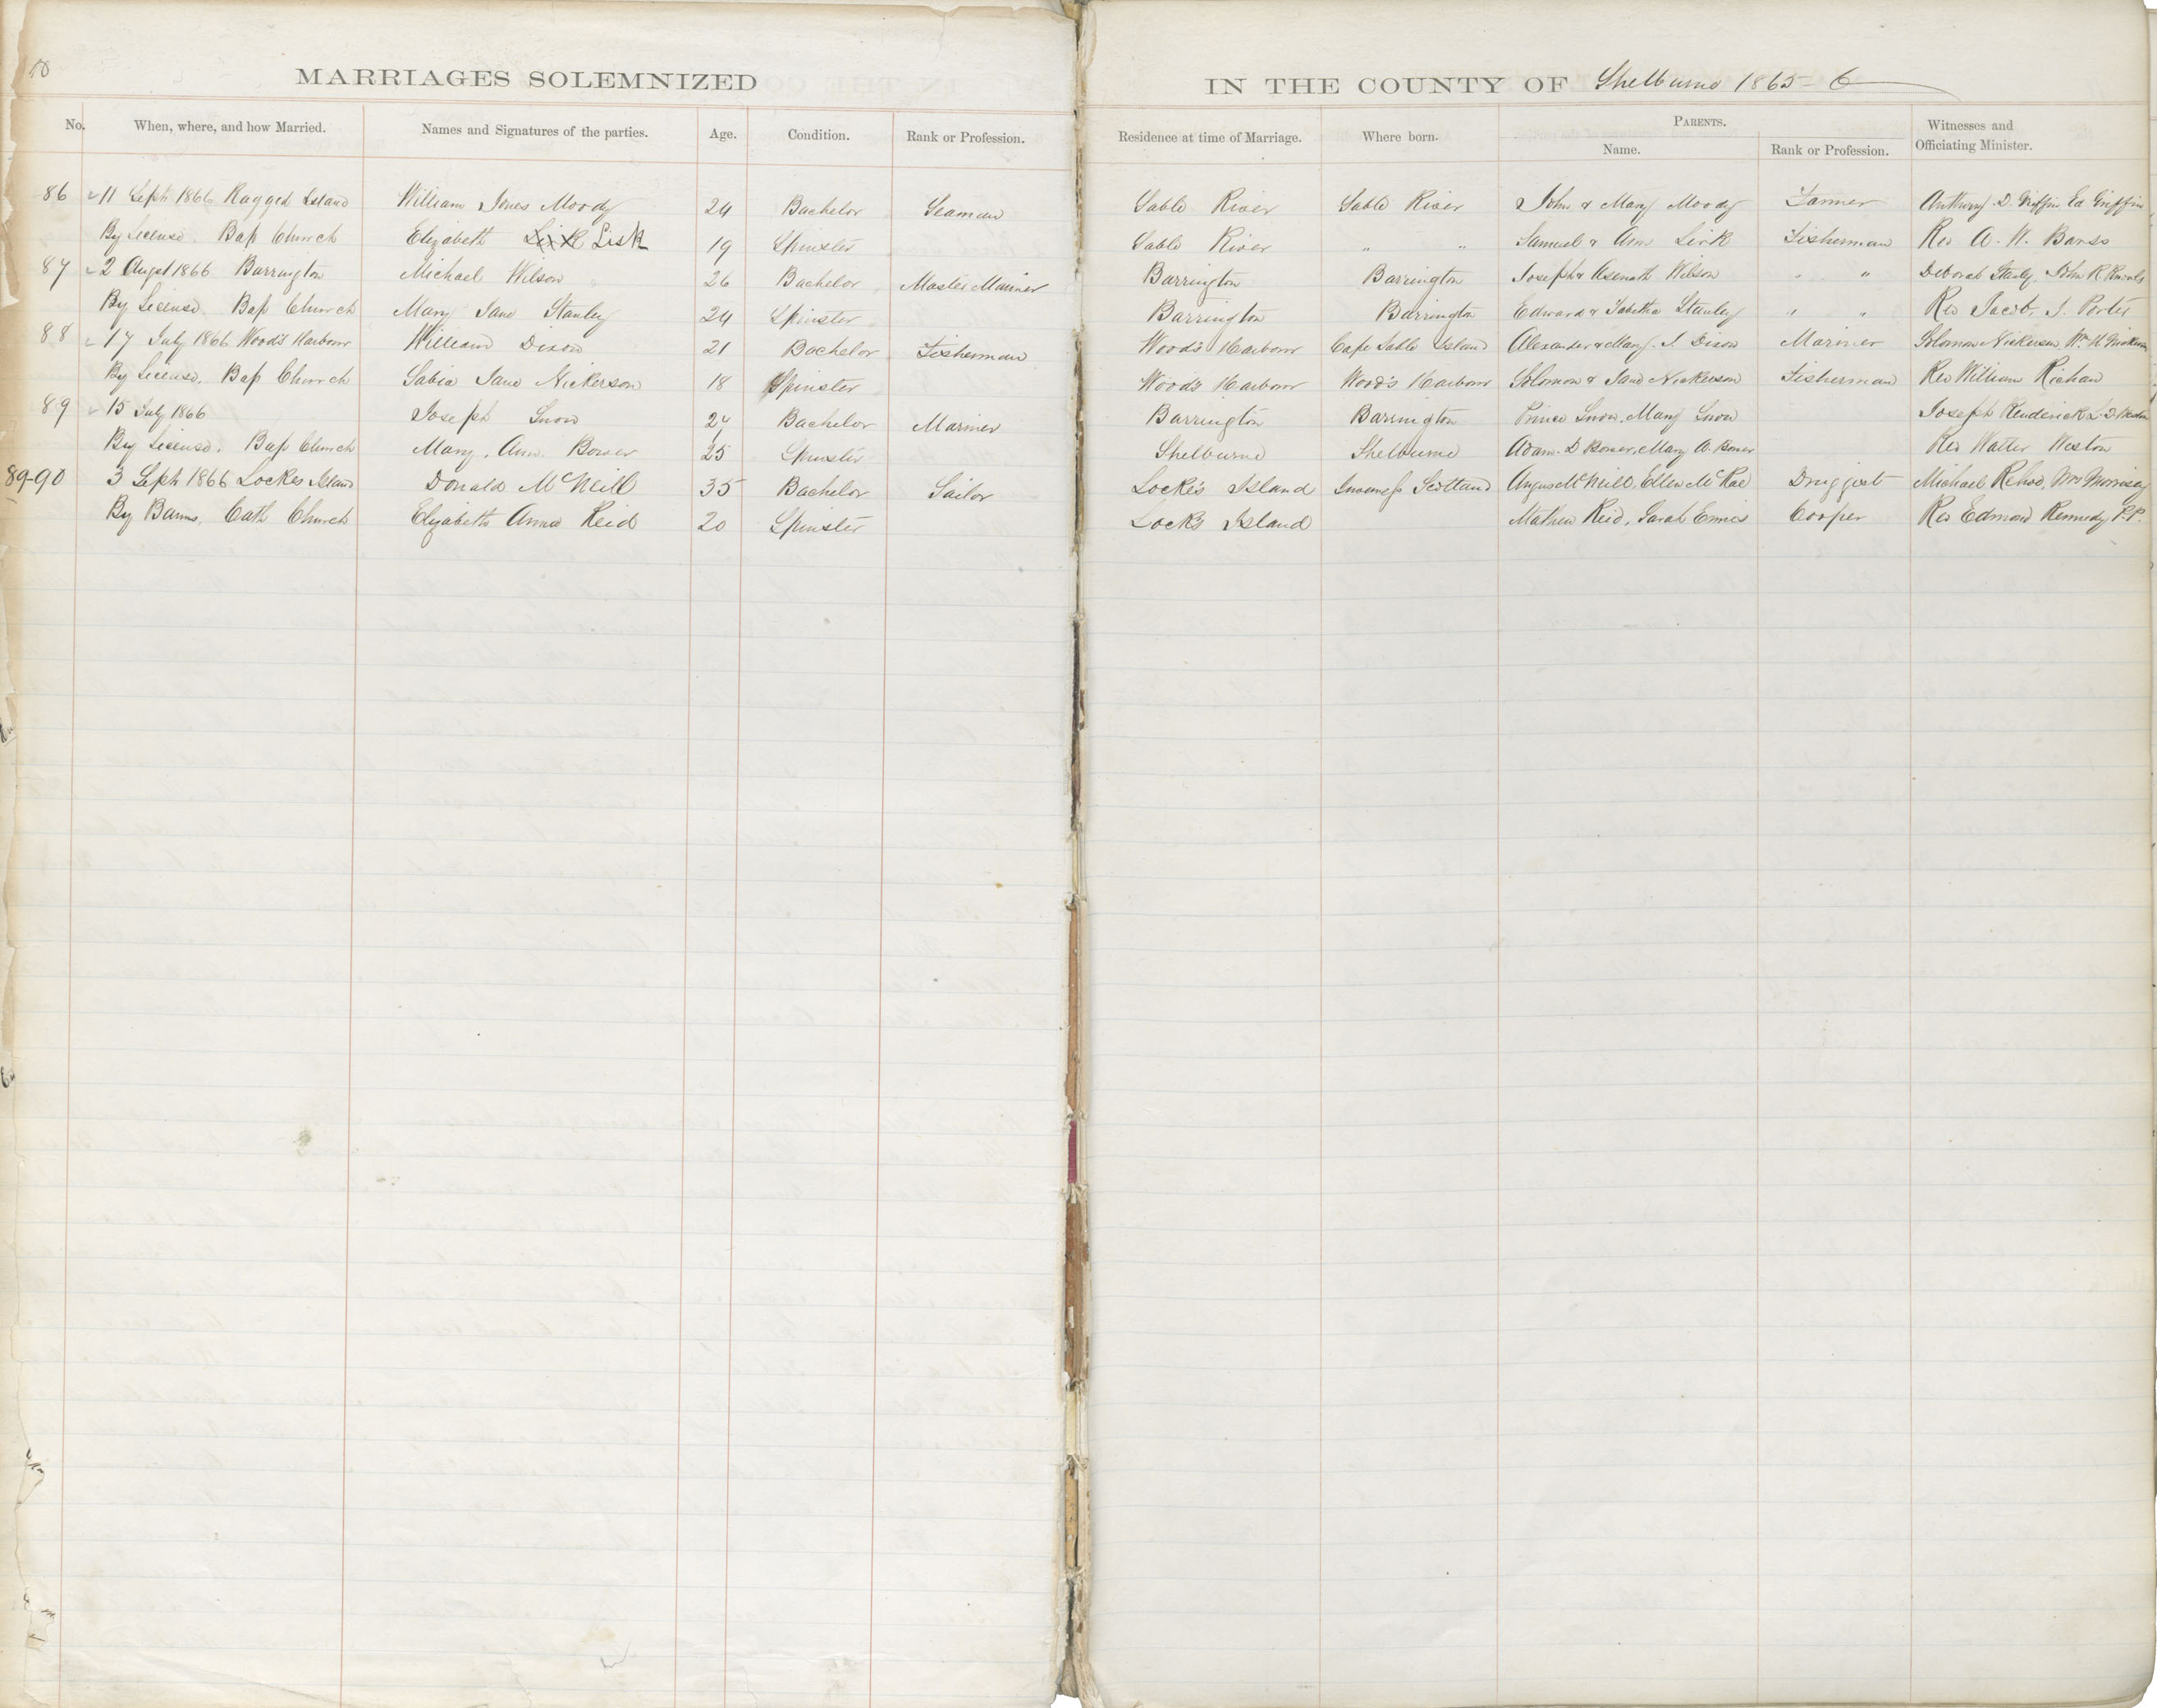 MARRIAGES SOLEMNIZED IN THE COUNTY OF Shelburne 1865-6
No. When, where, and how Married. Names and Signatures of the parties. Age. Condition. Rank or Profession. Residence at time of Marriage. Where born. PARENTS. Name. Rank or Profession. Witnesses and Officiating Minister.
86 11 Sept 1866 Ragged Island William Jones Moody 24 Bachelor Seaman Sable River Sable River John & Mary Moody Farmer Anthony D. Griffin Ed Griffin
By License. Bap Church Elizabeth Lisk 19 Spinster Sable River " " Samuel & Ann Lisk Fisherman Rev A. W. Barss
87 2 Augst 1866 Barrington Michael Wilson 26 Bachelor Master Mariner Barrington Barrington Joseph & Asenath Wilson " " Deborah Stanly, John R
By License. Bap Church Mary Jane Stanley 24 Spinster Barrington Barrington Edward & Tabetha Stanley " " Rev Jacob. J. Porter
88 17 July 1866 Wood's Harbour William Dixon 21 Bachelor Fisherman Wood's Harbour Cape Sable Island Alexander & Mary. J Dixon Mariner Solomon Nickerson Wm H Nickerson
By License. Bap Church Sabia Jane Nickerson 18 Spinster Wood's Harbour Wood's Harbour Solomon & Jane Nickerson Fisherman Rev William Richan
89 15 July 1866 Joseph Snow 24 Bachelor Mariner Barrington Barrington Prince Snow, Mary Snow Joseph Kenderick
By License. Bap Church Mary. Ann. Bower 25 Spinster Shelburne Shelburne Adam. D Bower, Mary A. Bower Rev Walter Weston
89-90 3 Sept 1866 Lockes Island Donald McNeill 35 Bachelor Sailor Locke's Island Inverness Scotland Angus McNeill, Ellen McRae Druggist Michael Rehoe, Morrisey
By Banns. Cath Church Elizabeth Anna Reid 20 Spinster Locks Island Mathew Reid, Sarah Ennis Cooper Rev Edmond Kennedy P.P.